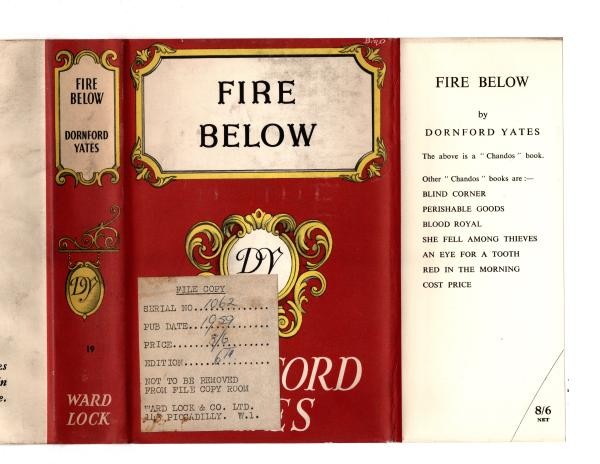 es
in
e.
FIRE
BELOW
DORNFORD
YATES
DY
19
WARD
LOCK
FIRE
BELOW
DY
FORD
ES
FILE COPY
SERIAL NO...1062
PUB DATE...1959
PRICE...8/6
EDITION...6TH
NOT TO BE REMOVED
FROM FILE COPY ROOM
WARD LOCK & CO. LTD.
PICCADILLY. W.1.
FIRE BELOW
by
DORNFORD YATES
The above is a "Chandos" book.
Other "Chandos" books are :—
BLIND CORNER
PERISHABLE GOODS
BLOOD ROYAL
SHE FELL AMONG THIEVES
AN EYE FOR A TOOTH
RED IN THE MORNING
COST PRICE
8/6
NET